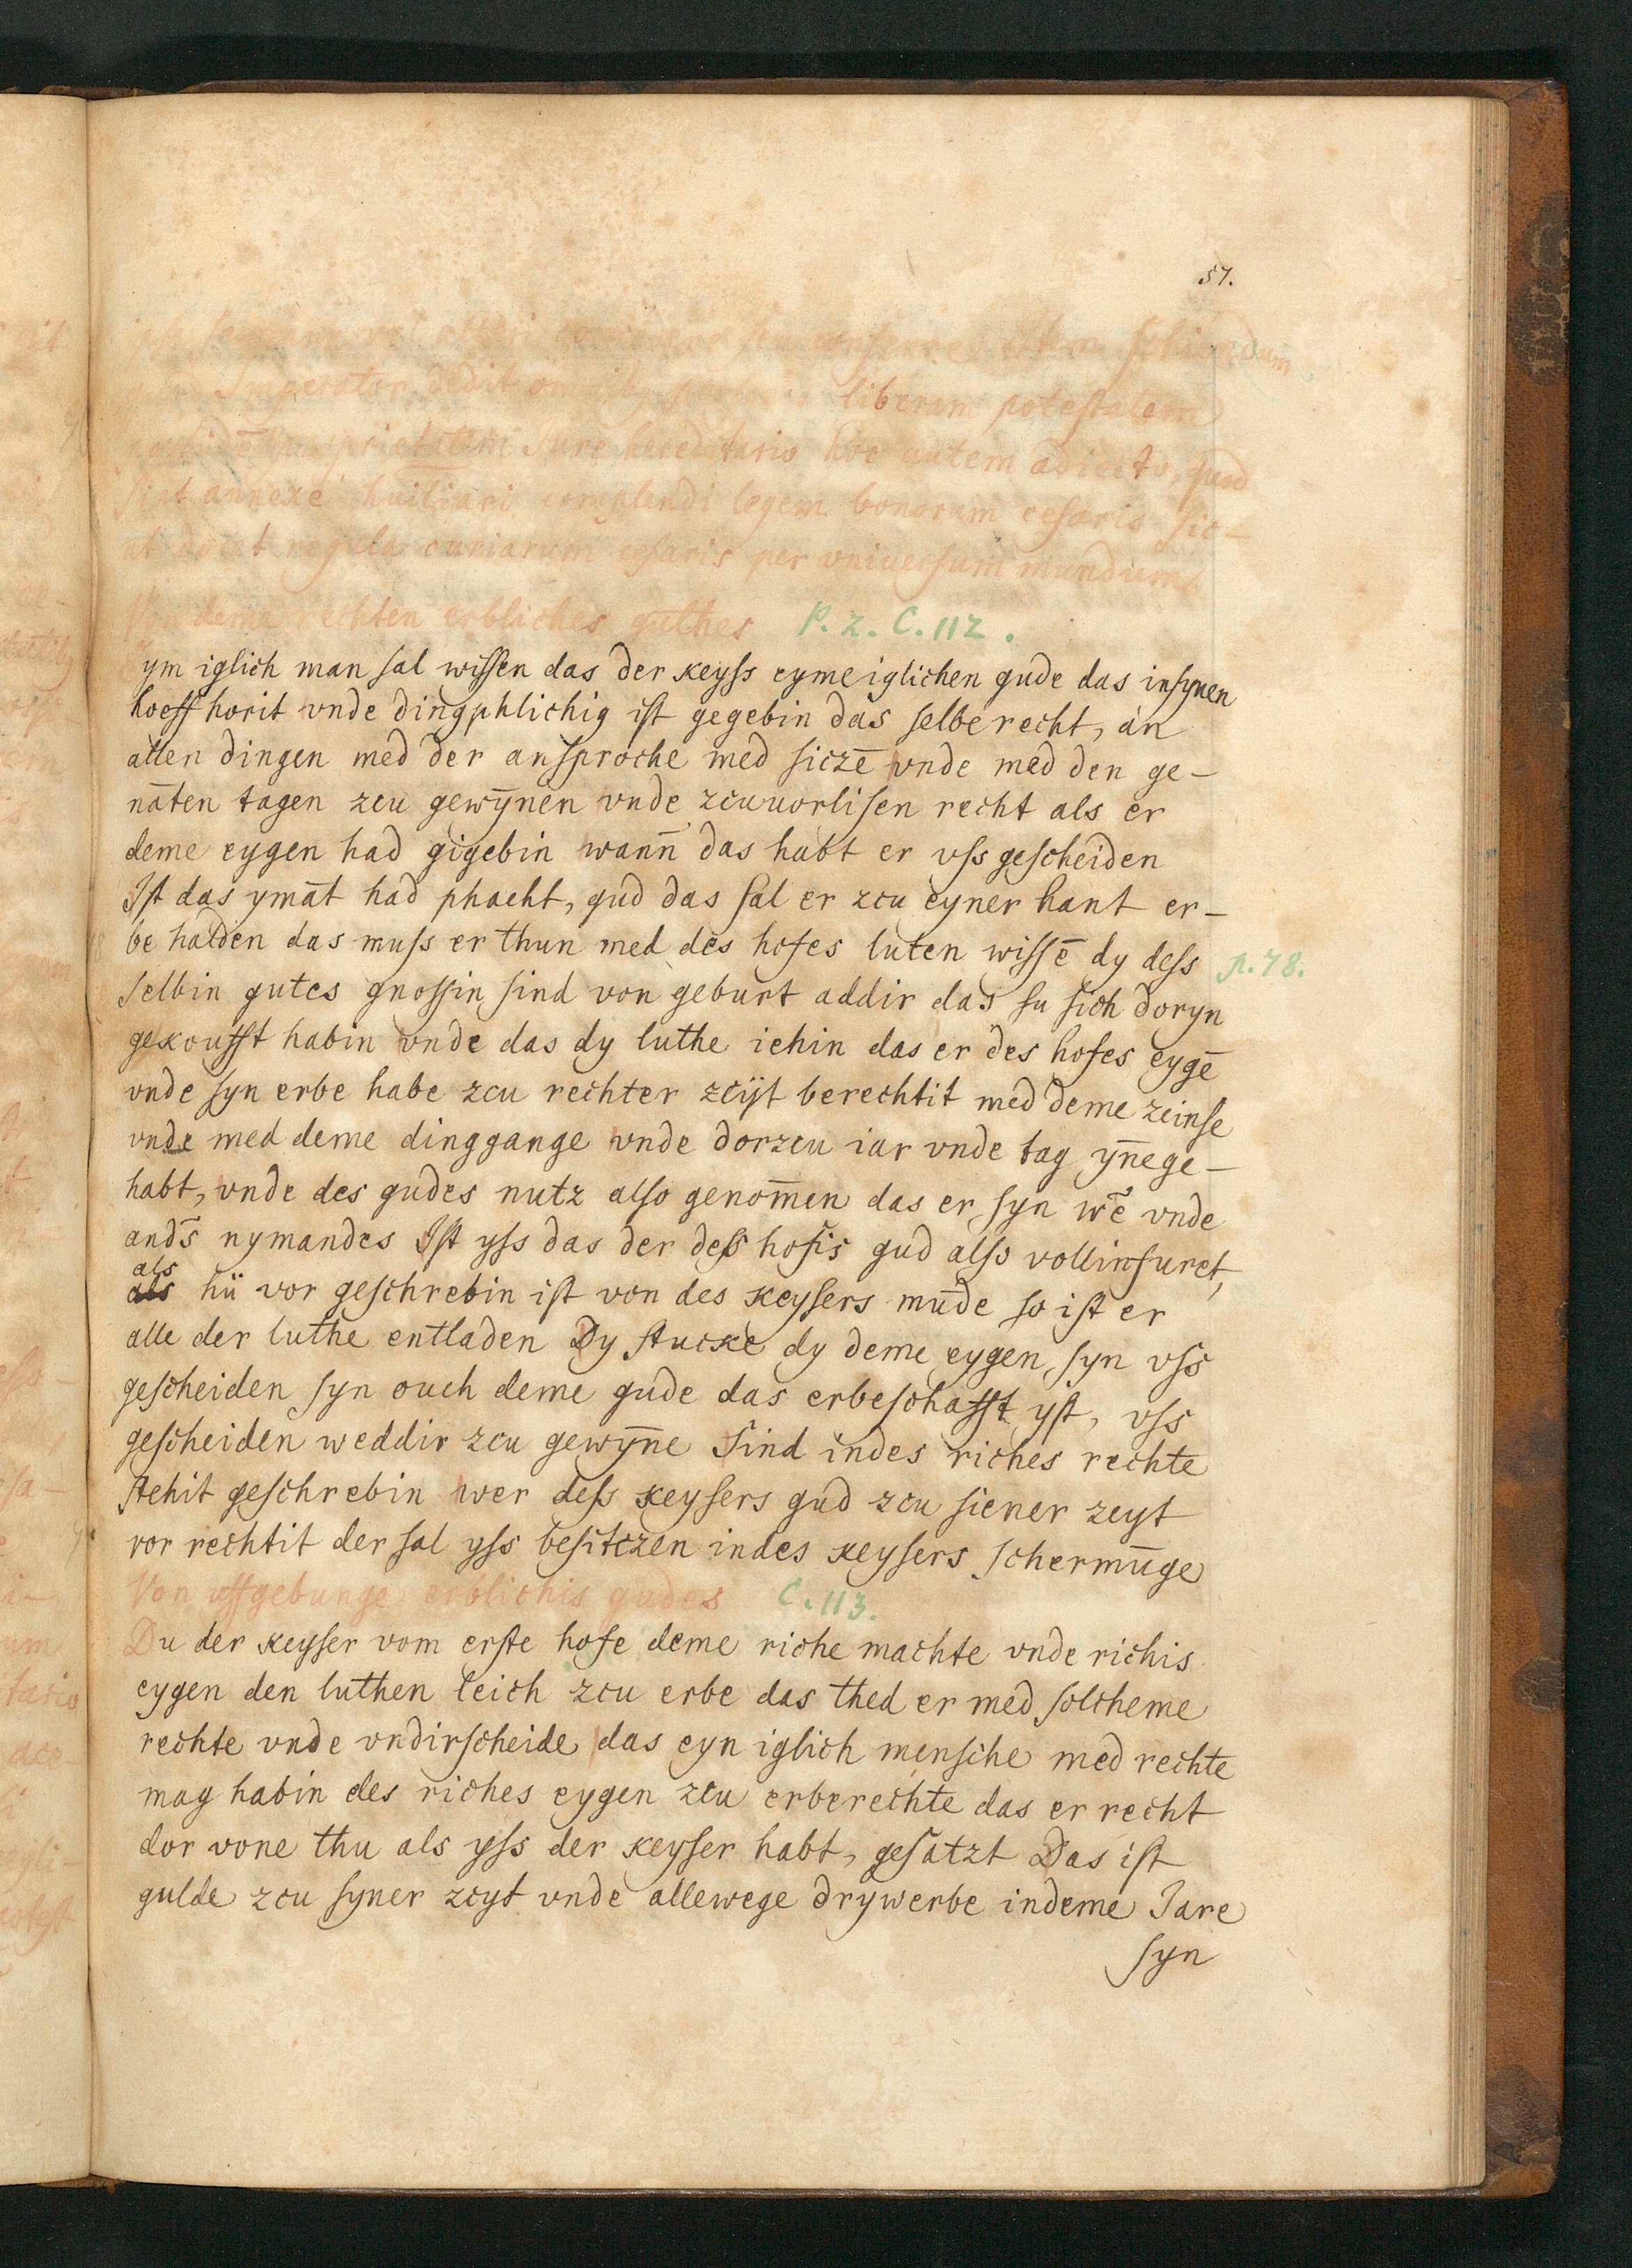 57.
Imperator dedit liberam potestatem
proprietatem Jure hereditario hoc autem adiecto, quod
sint annexe huiliari complendi legem bonorum cesaris sic-
ut docet regula curiarum cesaris per vniuersum mundum
deme rechten erbliches guthes P. 2. C. 112.
ym iglich man sal wissen das der keyss eymeiglichen gude das insynen
hoeff horit vnde dingphlichig ist gegebin das selbe recht, an
allen dingen med der ansproche med siczē vnde med den ge-
nāten tagen zcu gewȳnen vnde zcuuorlisen recht als er
deme eygen had gigebin wann̄ das habt er vss gescheiden
Ist das ymāt had phacht, gud das sal er zcu eyner hant er-
be halden das muss er thun med des hofes luten wissē dy dess p. 78.
selbin gutes gnossin sind von geburt addir das su sich doryn
gekoufft habin vnde das dy luthe iehin das er des hofes eygē
vnde syn erbe habe zcu rechter zcijt berechtit med deme zeinse
vnde med deme dinggange vnde dorzcu iar vnde tag yn̄ege-
habt, vnde des gudes nutz also genom̄en das er syn wē vnde
andš nymandes Ist yss das der dess hofis gud also vollinfuret,
als
als hü vor geschrebin ist von des keysers mūde so ist er
alle der luthe entladen Dy stucke dy deme eygen syn vss
gescheiden syn ouch deme gude das erbeschafft yst, vss
gescheiden weddir zcu gewȳne Sind indes riches rechte
stehit geschrebin wer dess keysers gud zcu siener zeyt
vor rechtit der sal yss besitczen indes keysers schermūge
Von uffgebunge erblichis gudes C. 113.
Du der keyser vom erste hofe deme riche machte vnde richis
eygen den luthen leich zcu erbe das thed er med solcheme
rechte vnde vndirscheide das eyn iglich mensche med rechte
mag habin des riches eygen zcu erberechte das er recht
dor vone thu als yss der keyser habt, gesatzt Das ist
gulde zcu syner zcyt vnde allewege drywerbe indeme Jare
syn